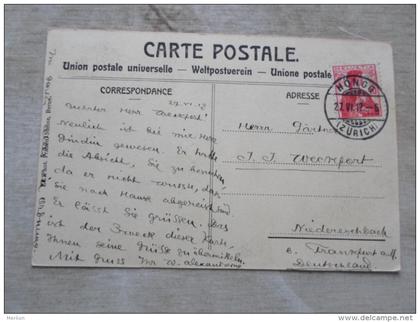 CARTE POSTALE.
Union postale universelle – Weltpostverein – Unione postale
CORRESPONDANCE
ADRESSE
HELVETIA
HÖNGG
27.VI.12
(ZÜRICH)
27. VI. 12
Herr
Neulich ist bei mir Herr
gewesen. Er hatte
die Absicht, Sie zu besuchen,
da er nicht wusste, dass
Sie nach Hause abgereist sind
Er lässt Sie grüssen. Das
ist der Zweck dieser Karte,
Ihnen seine Grüsse zu übermitteln.
Mit Gruss Ihr W.
Herrn Gärtner
J. J.
Niedereschbach
b. Frankfurt a/M.
Deutschland.